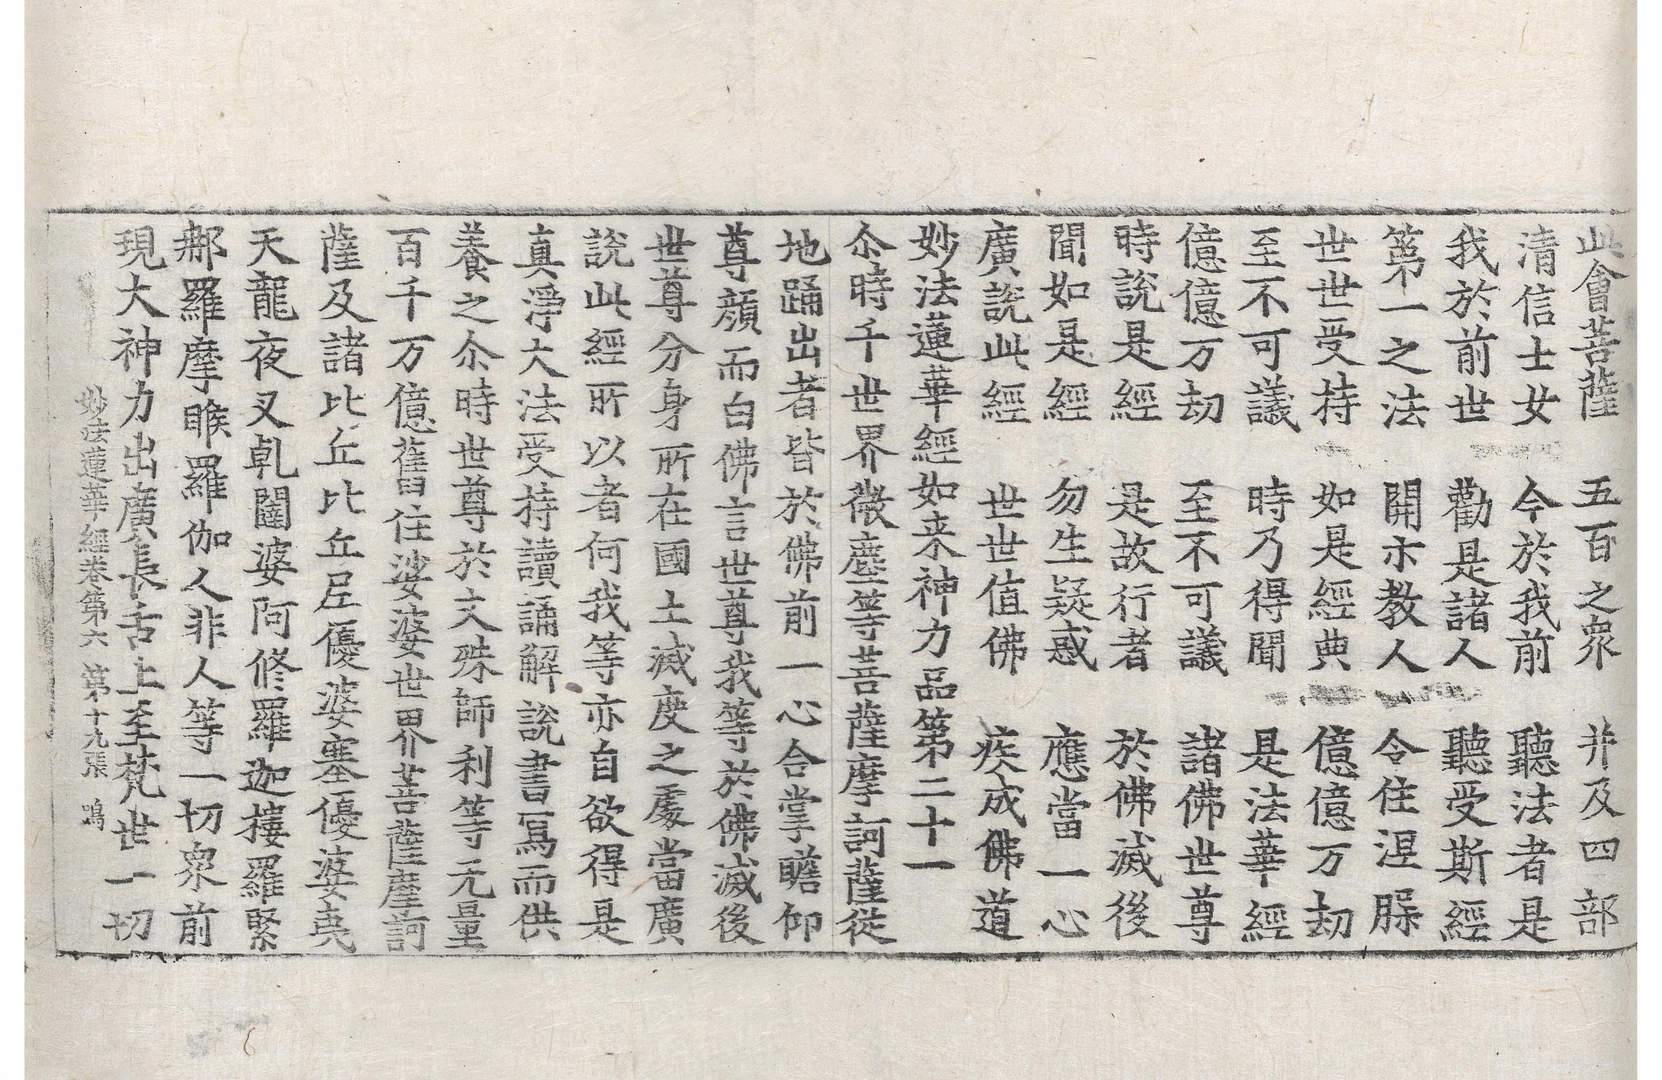 此會菩薩 五百之衆 并及四部
清信士女 今於我前 聽法者是
我於前世 勸是諸人 聽受斯經
第一之法 開示教人 令住涅槃
世世受持 如是經典 億億万劫
至不可議 時乃得聞 是法華經
億億万劫 至不可議 諸佛世尊
時說是經 是故行者 於佛滅後
聞如是經 勿生疑惑 應當一心
廣說此經 世世值佛 疾成佛道
妙法蓮華經如來神力品第二十一
尒時千世界微塵等菩薩摩訶薩從
地踊出者皆於佛前一心合掌瞻仰
尊顏而白佛言世尊我等於佛滅後
世尊分身所在國土滅度之處當廣
說此經所以者何我等亦自欲得是
真淨大法受持讀誦解說書寫而供
養之尒時世尊於文殊師利等无量
百千万億舊住娑婆世界菩薩摩訶
薩及諸比丘比丘尼優婆塞優婆夷
天龍夜叉乹闥婆阿修羅迦樓羅緊
那羅摩睺羅伽人非人等一切衆前
現大神力出廣長舌上至梵世一切
妙法蓮華經卷第六 第十九張 鳴